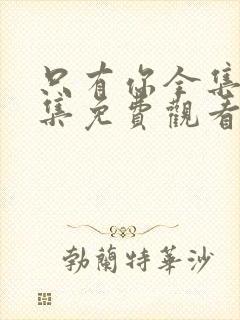 只有你全集
集免費觀看
勃蘭特華沙